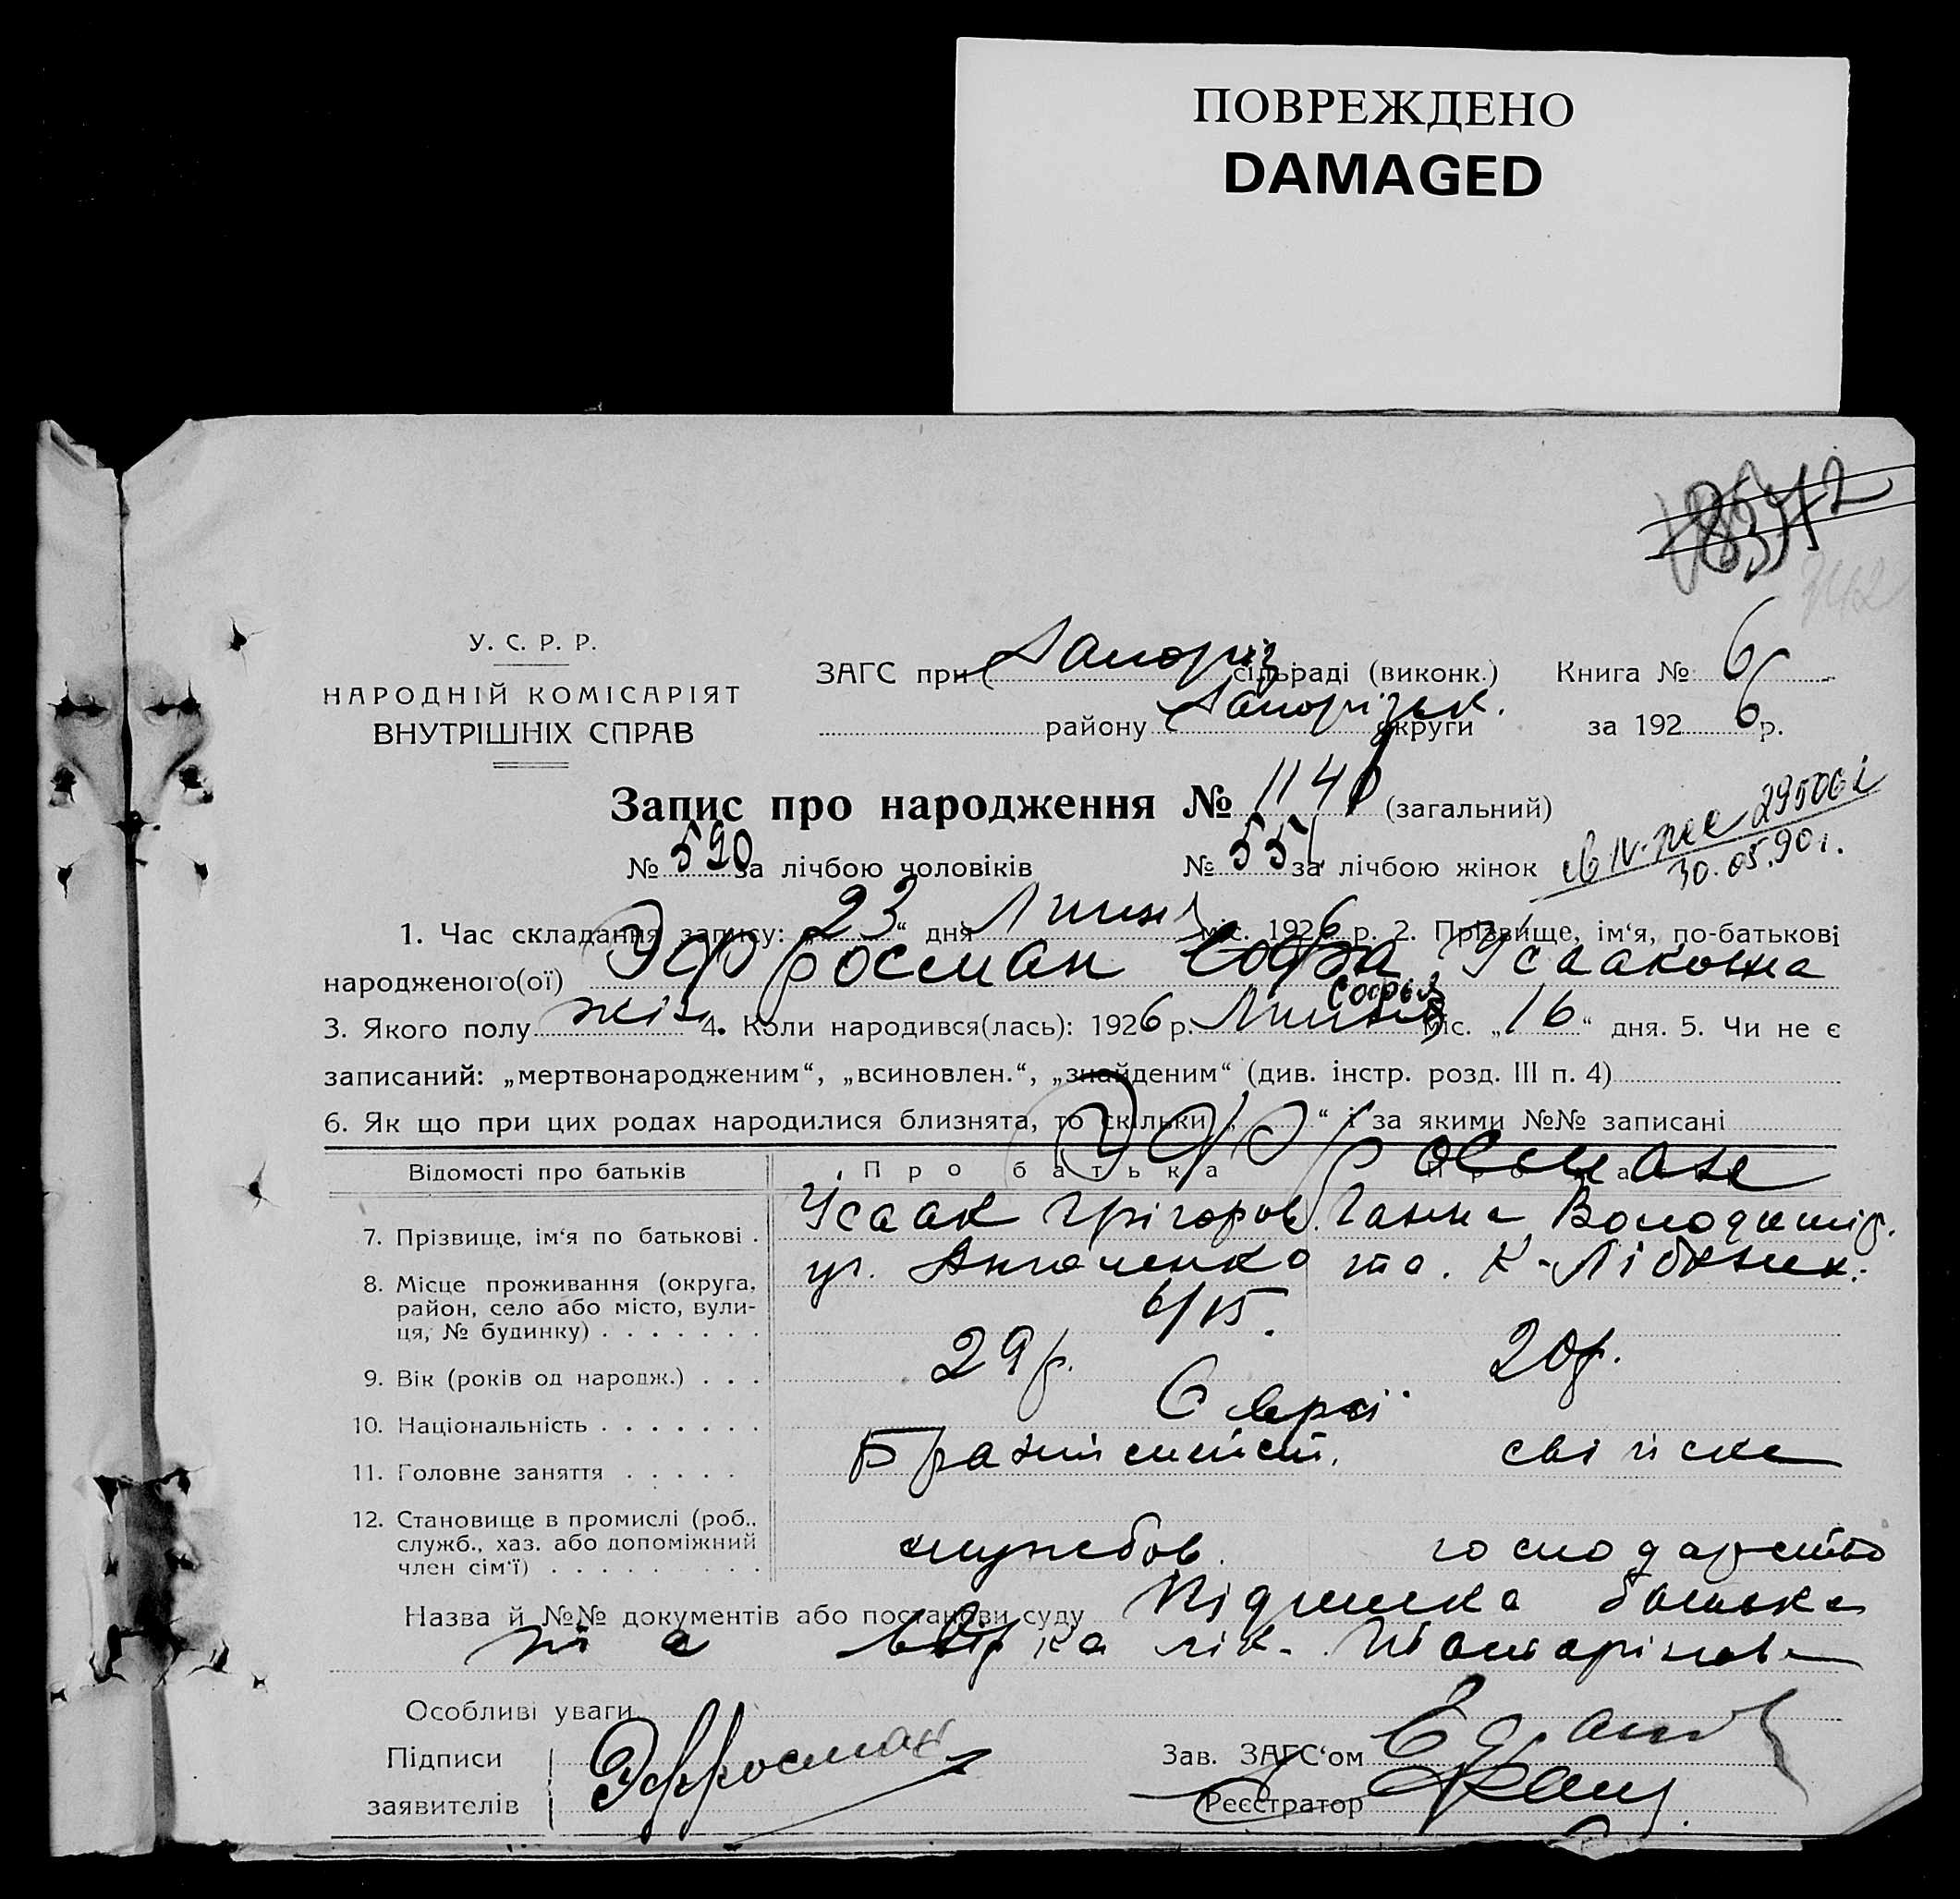 ПОВРЕЖДЕНО
DAMAGED
У. С. Р. Р.
НАРОДНІЙ КОМІСАРІЯТ
ВНУТРІШНІХ СПРАВ
ЗАГС при Запоріз. сільраді (виконк.) Книга № 6
району Запорізьк. округи за 1926 р.
Запис про народження № 1141 (загальний)
№ 590 за лічбою чоловіків № 551 за лічбою жінок
30.05.90г.
1. Час складання запису: „23“ дня Липня міс. 1926 р. 2. Прізвище, ім‘я, по-батькові
народженого(ої) Эфросман Софа Ісааковна
Софья
3. Якого полу жін 4. Коли народився(лась): 1926 р. Липня міс. „16“ дня. 5. Чи не є
записаний: „мертвонародженим“, „всиновлен.“, „знайденим“ (див. інстр. розд. III п. 4)
6. Як що при цих родах народилися близнята, то скільки „ “ і за якими №№ записані
Відомості про батьків Про батька
Эфросман
7. Прізвище, ім‘я по батькові . Ісаак Грігоров. Ганна Володимір.
8. Місце проживання (округа, район, село або місто, вулиця, № будинку) . . . . . . . уг. та К-Лібкнех.
6/15.
9. Вік (років од народж.) . . . 29 р. 20 р.
10. Національність . . . . . . . Євреї
11. Головне заняття . . . . . свійске
12. Становище в промислі (роб., служб., хаз. або допоміжний член сім‘ї) . . . . . . . . . службов. господарство
Назва й №№ документів або постанови суду Підписка батька
та лік.
Особливі уваги
Підписи
заявителів Эффросман
Зав. ЗАГС‘ом
Реєстратор